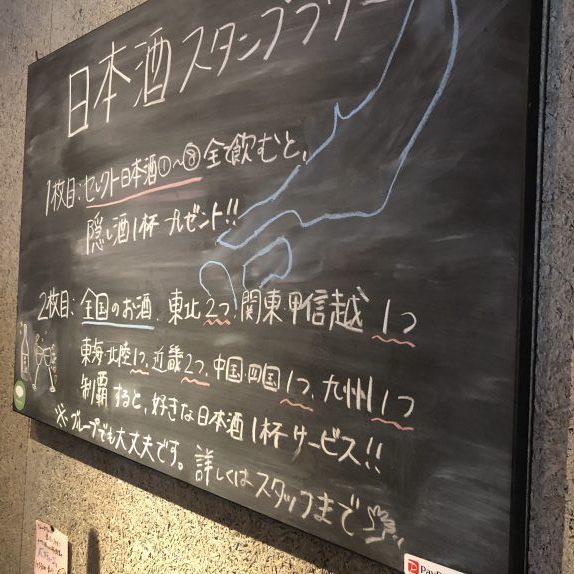 日本酒スタンプラリー
1枚目:セレクト日本酒①～⑧全て飲むと、
隠し酒1杯プレゼント!!
2枚目:全国のお酒、東北2つ、関東甲信越1つ
東海・北陸1つ、近畿2つ、中国・四国1つ、九州1つ
制覇すると、好きな日本酒1杯サービス!!
※グループでも大丈夫です。詳しくはスタッフまで